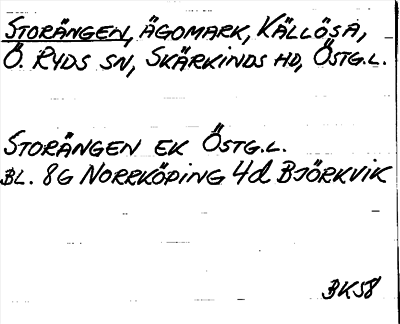 STORÄNGEN, ÄGOMARK, KÄLLÖSA,
Ö. RYDS SN, SKÄRKINDS HD, ÖSTG.L.
STORÄNGEN EK ÖSTG.L.
BL. 8G NORRKÖPING 4d BJÖRKVIK
BK58